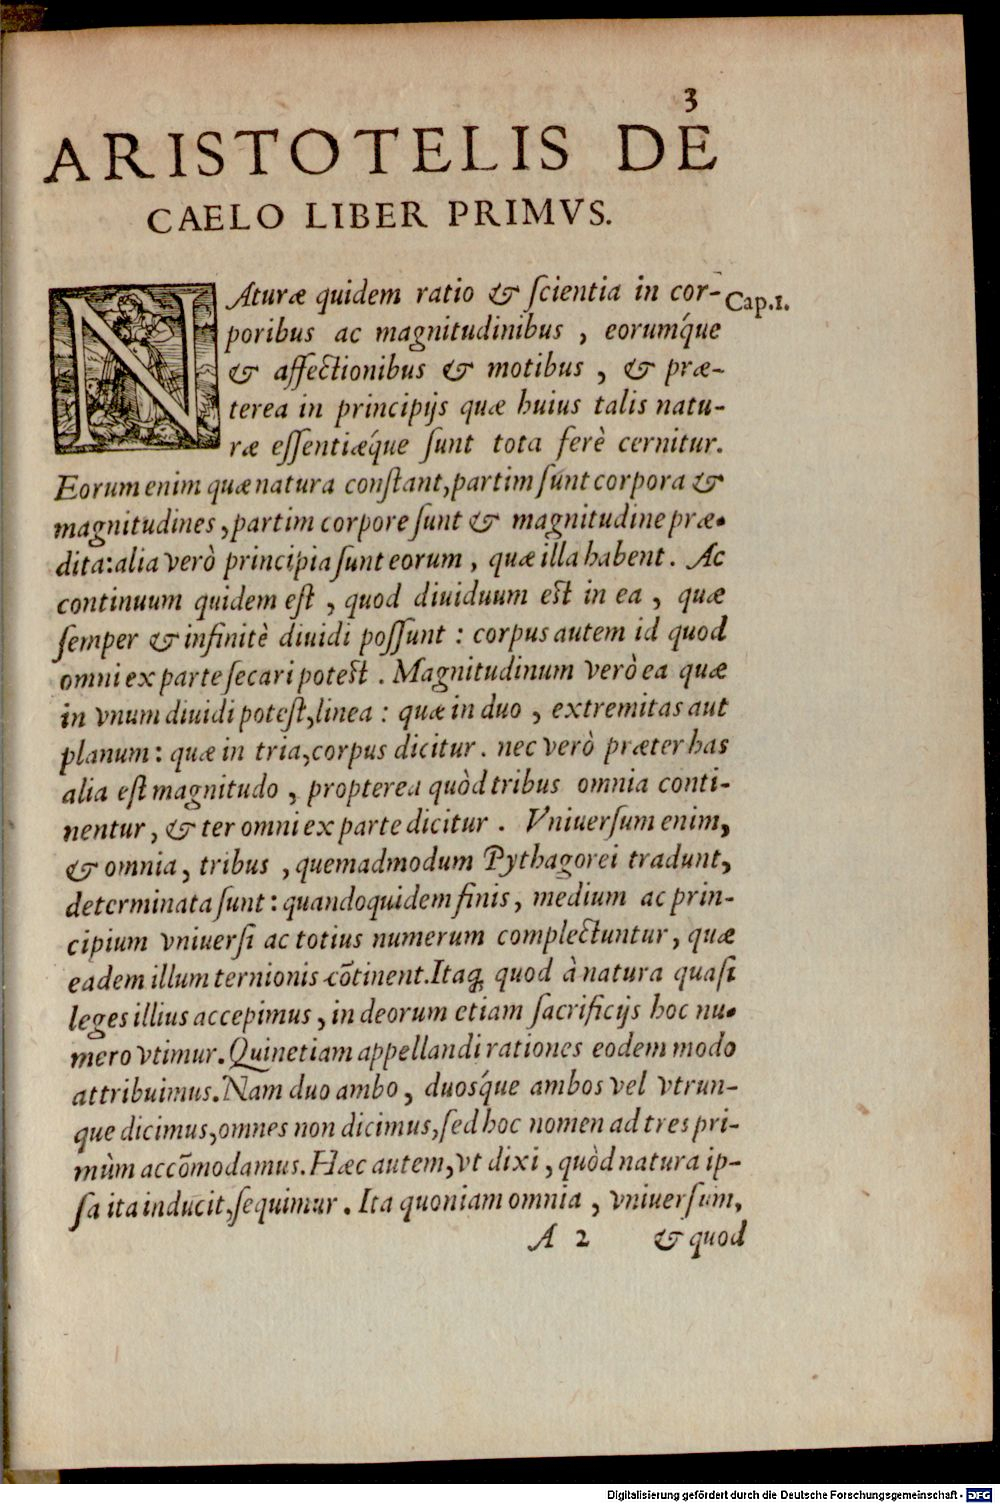 3
ARISTOTELIS DE
CAELO LIBER PRIMVS.
NAturæ quidem ratio & ſcientia in cor- Cap.1.
poribus ac magnitudinibus , eorumq́ue
& affectionibus & motibus , & præ-
terea in principijs quæ huius talis natu-
ræ eſſentiæq́ue ſunt tota ferè cernitur.
Eorum enim quæ natura conſtant, partim ſunt corpora &
magnitudines , partim corpore ſunt & magnitudine præ-
dita: alia verò principia ſunt eorum , quæ illa habent . Ac
continuum quidem eſt , quod diuiduum est in ea , quæ
ſemper & infinitè diuidi poſſunt : corpus autem id quod
omni ex parte ſecari potest . Magnitudinum verò ea quæ
in vnum diuidi poteſt, linea : quæ in duo , extremitas aut
planum : quæ in tria, corpus dicitur . nec verò præter has
alia eſt magnitudo , propterea quòd tribus omnia conti-
nentur , & ter omni ex parte dicitur . Vniuerſum enim,
& omnia, tribus , quemadmodum Pythagorei tradunt,
determinata ſunt : quandoquidem finis, medium ac prin-
cipium vniuerſi ac totius numerum complectuntur, quæ
eadem illum ternionis cõtinent. Itaq; quod à natura quaſi
leges illius accepimus , in deorum etiam ſacrificijs hoc nu-
mero vtimur. Quinetiam appellandi rationes eodem modo
attribuimus. Nam duo ambo, duosq́ue ambos vel vtrun-
que dicimus, omnes non dicimus, ſed hoc nomen ad tres pri-
mùm accõmodamus. Hæc autem, vt dixi , quòd natura ip-
ſa ita inducit, ſequimur . Ita quoniam omnia , vniuerſum,
A 2 & quod
Digitalisierung gefördert durch die Deutsche Forschungsgemeinschaft - DFG